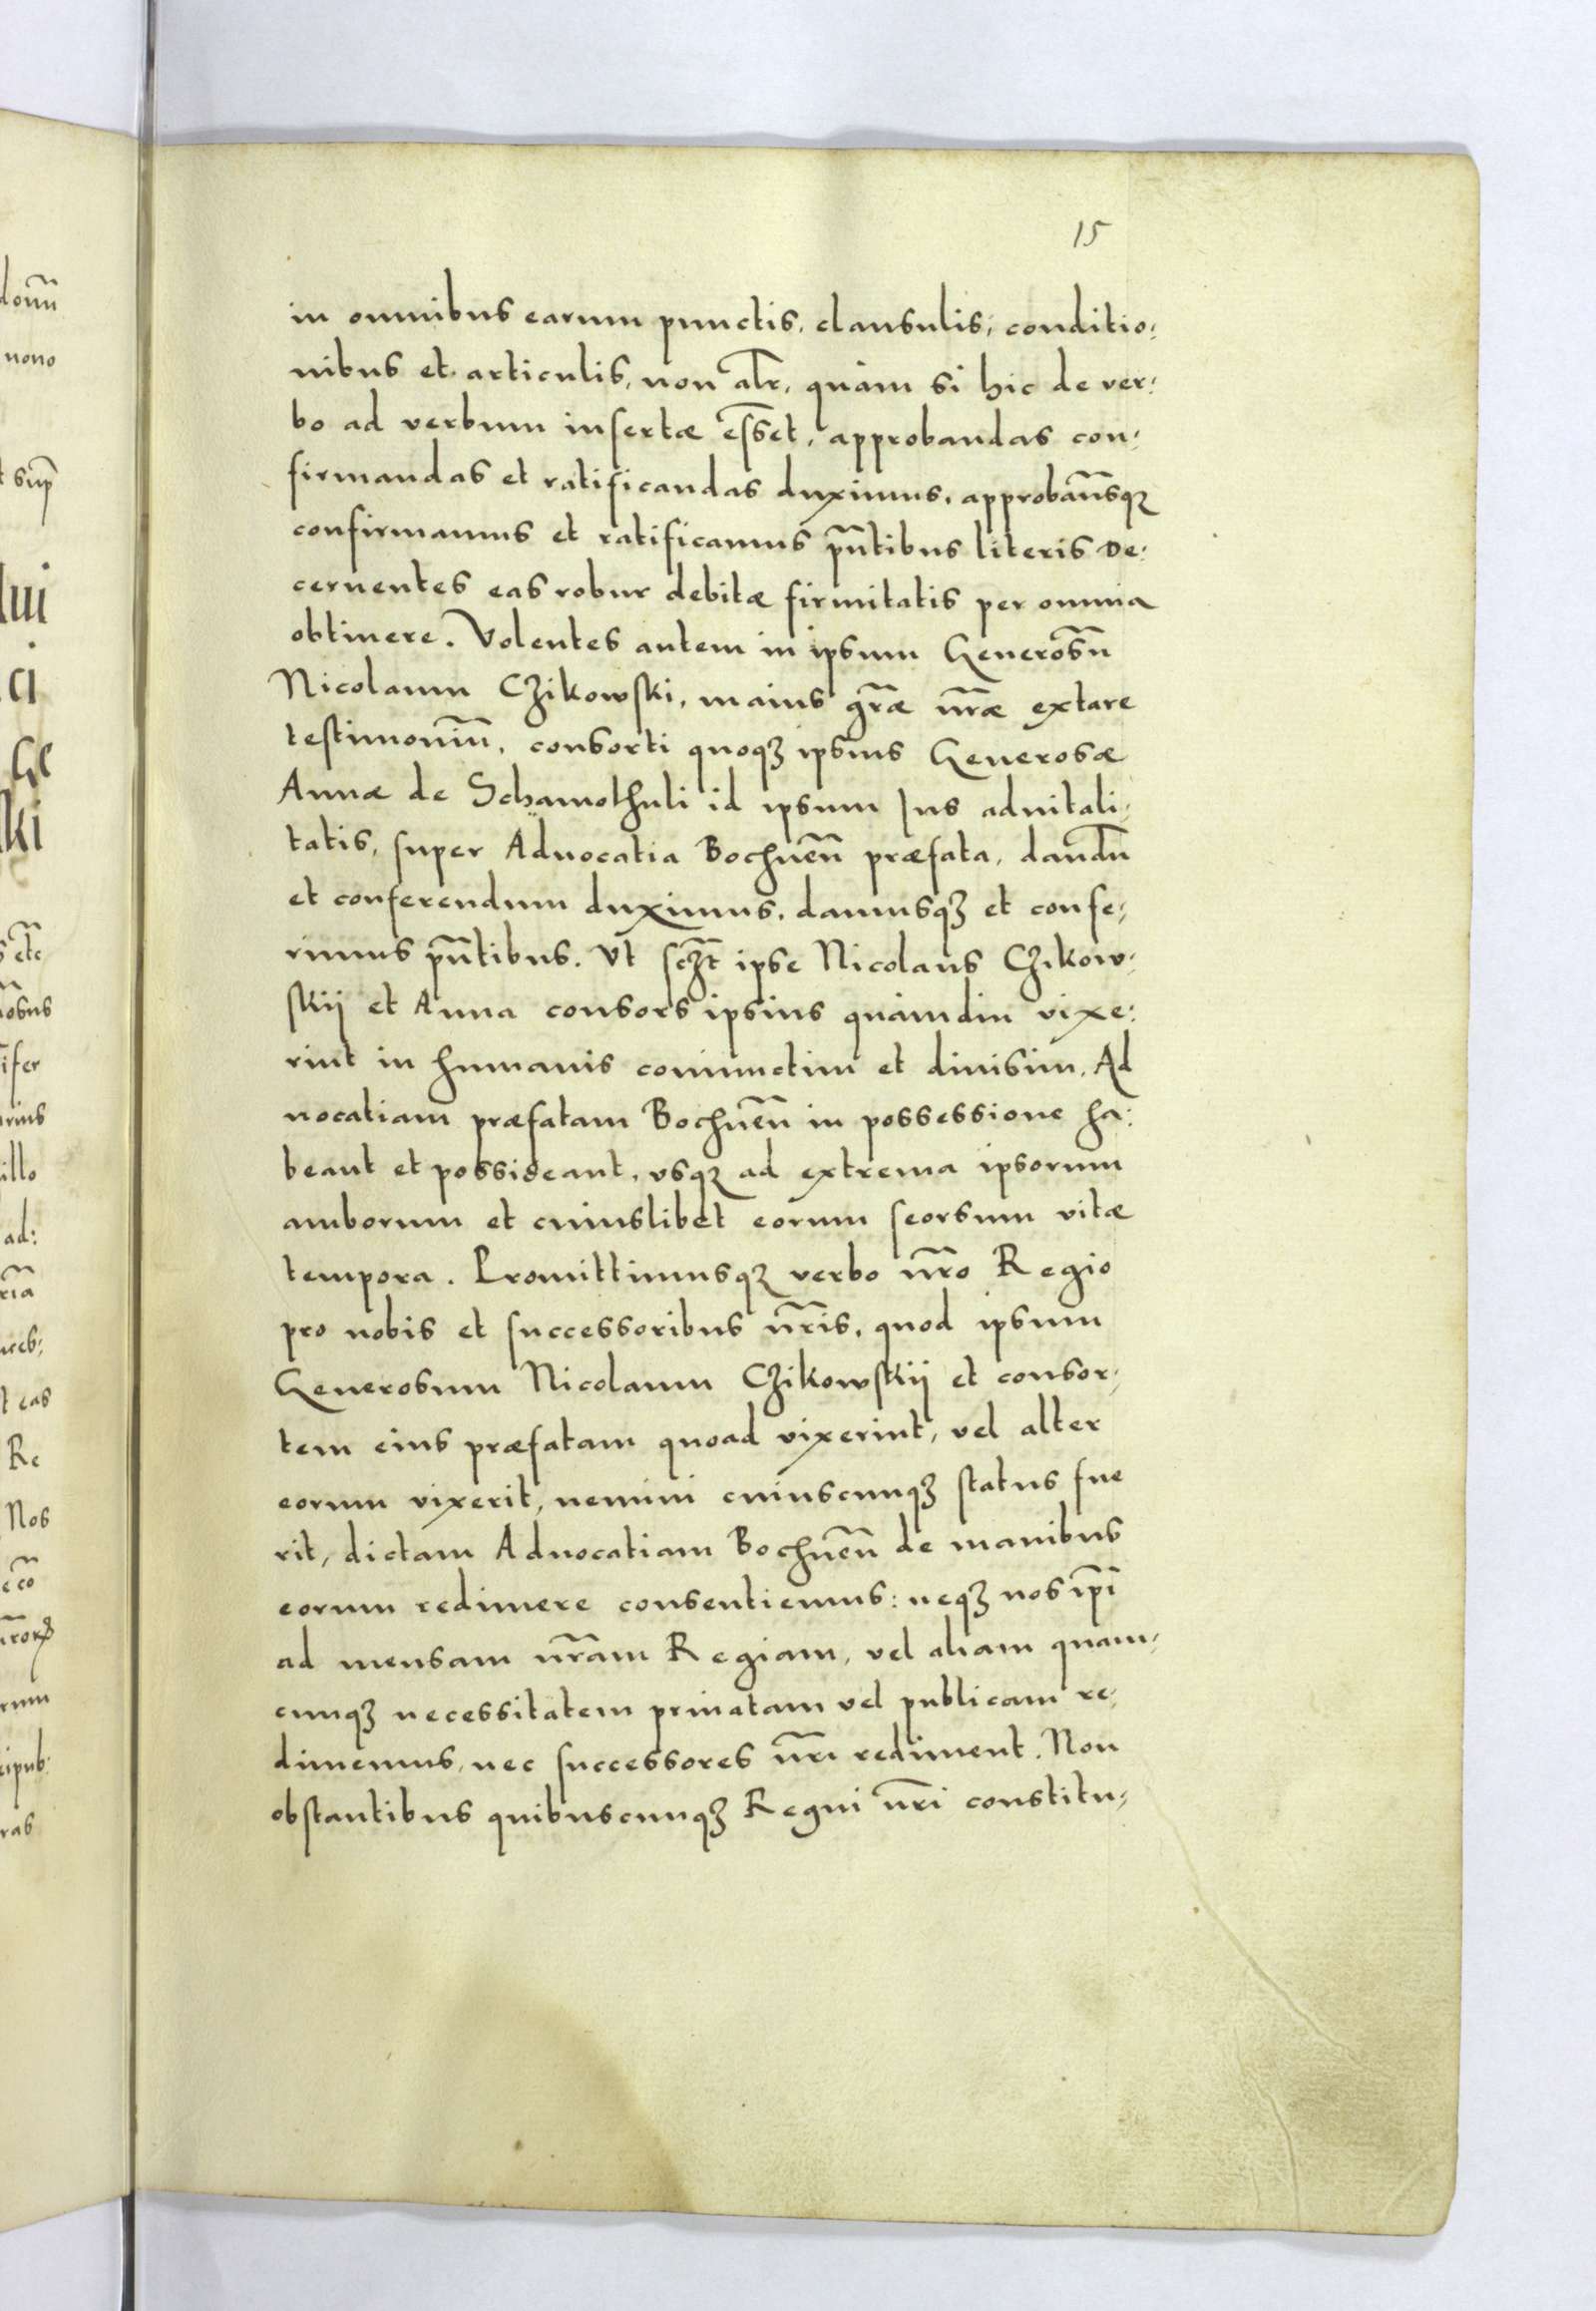 15
in omnibus earum punctis, clausulis, conditio:
nibus et articulis, non alr̄, quàm si hic de ver:
bo ad verbum insertæ es̄set, approbandas con:
firmandas et ratificandas duximus, approbam̄usqꝫ
confirmamus et ratificamus pn̄tibus literis De:
cernentes eas robur debitæ firmitatis per omnia
obtinere. Volentes autem in ipsum Generosū
Nicolaum Czikowski, maius gr̄æ nr̄æ extare
testimoniū, consorti quoqꝫ ipsius Generosæ
Annæ de Schamothuli id ipsum Ius aduitali:
tatis, super Aduocatia Bochnēn præfata, dandū
et conferendum duximus, damusqꝫ et confe:
rimus pn̄tibus. Vt sczt̄ ipse Nicolaus Czikow:
skij et Anna consors ipsius quàmdiu vixe:
rint in humanis coniunctim et diuisim, Ad
uocatiam præfatam Bochnēn in possessione ha:
beant et possideant, vsqꝫ ad extrema ipsorum
amborum et cuiuslibet eorum seorsum vitæ
tempora. Promittimusqꝫ verbo nr̄o Regio
pro nobis et successoribus nr̄is, quod ipsum
Generosum Nicolaum Czikowskij et consor:
tem eius præfatam quoad vixerint, vel alter
eorum vixerit, nemini cuiuscunqꝫ status fue
rit, dictam Aduocatiam Bochnēn de manibus
eorum redimere consentiemus: neqꝫ nos ip̄i
ad mensam nr̄am Regiam, vel aliam quam:
cunqꝫ necessitatem priuatam vel publicam re:
dimemus, nec successores nr̄i rediment. Non
obstantibus quibuscunqꝫ Regni nr̄i constitu: